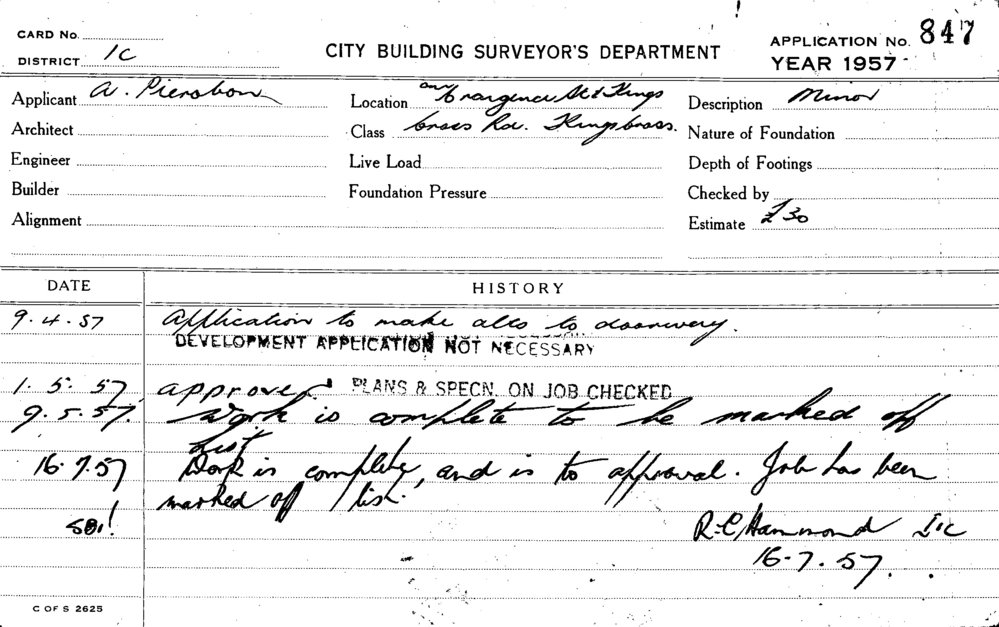 CARD No.
DISTRICT 1C
CITY BUILDING SURVEYOR'S DEPARTMENT
APPLICATION No. 847
YEAR 1957
Applicant A. Pierobon
Location cnr St & Kings
Description Minor
Architect
Class cross Rd. Kings Cross.
Nature of Foundation
Engineer
Live Load
Depth of Footings
Builder
Foundation Pressure
Checked by
Alignment
Estimate £30
DATE
HISTORY
9.4.57 Application to make alts to doorway.
DEVELOPMENT APPLICATION NOT NECESSARY
1.5.57 approved PLANS & SPECN. ON JOB CHECKED
9.5.57. Work is complete to be marked off
List
16.7.57 Work is complete, and is to approval. Job has been
marked off list.
R.C. Hammond
16.7.57.
C OF S 2625